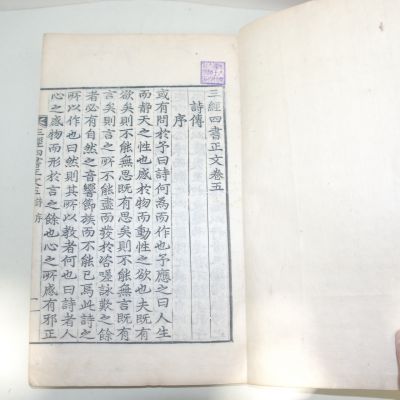 三經四書正文卷五
詩傳
序
或有問於予曰詩何為而作也予應之曰人生
而靜天之性也感於物而動性之欲也夫既有
欲矣則不能無思既有思矣則不能無言既有
言矣則言之所不能盡而發於咨嗟詠歎之餘
者必有自然之音響節族而不能已焉此詩之
所以作也曰然則其所以教者何也曰詩者人
心之感物而形於言之餘也心之所感有邪正